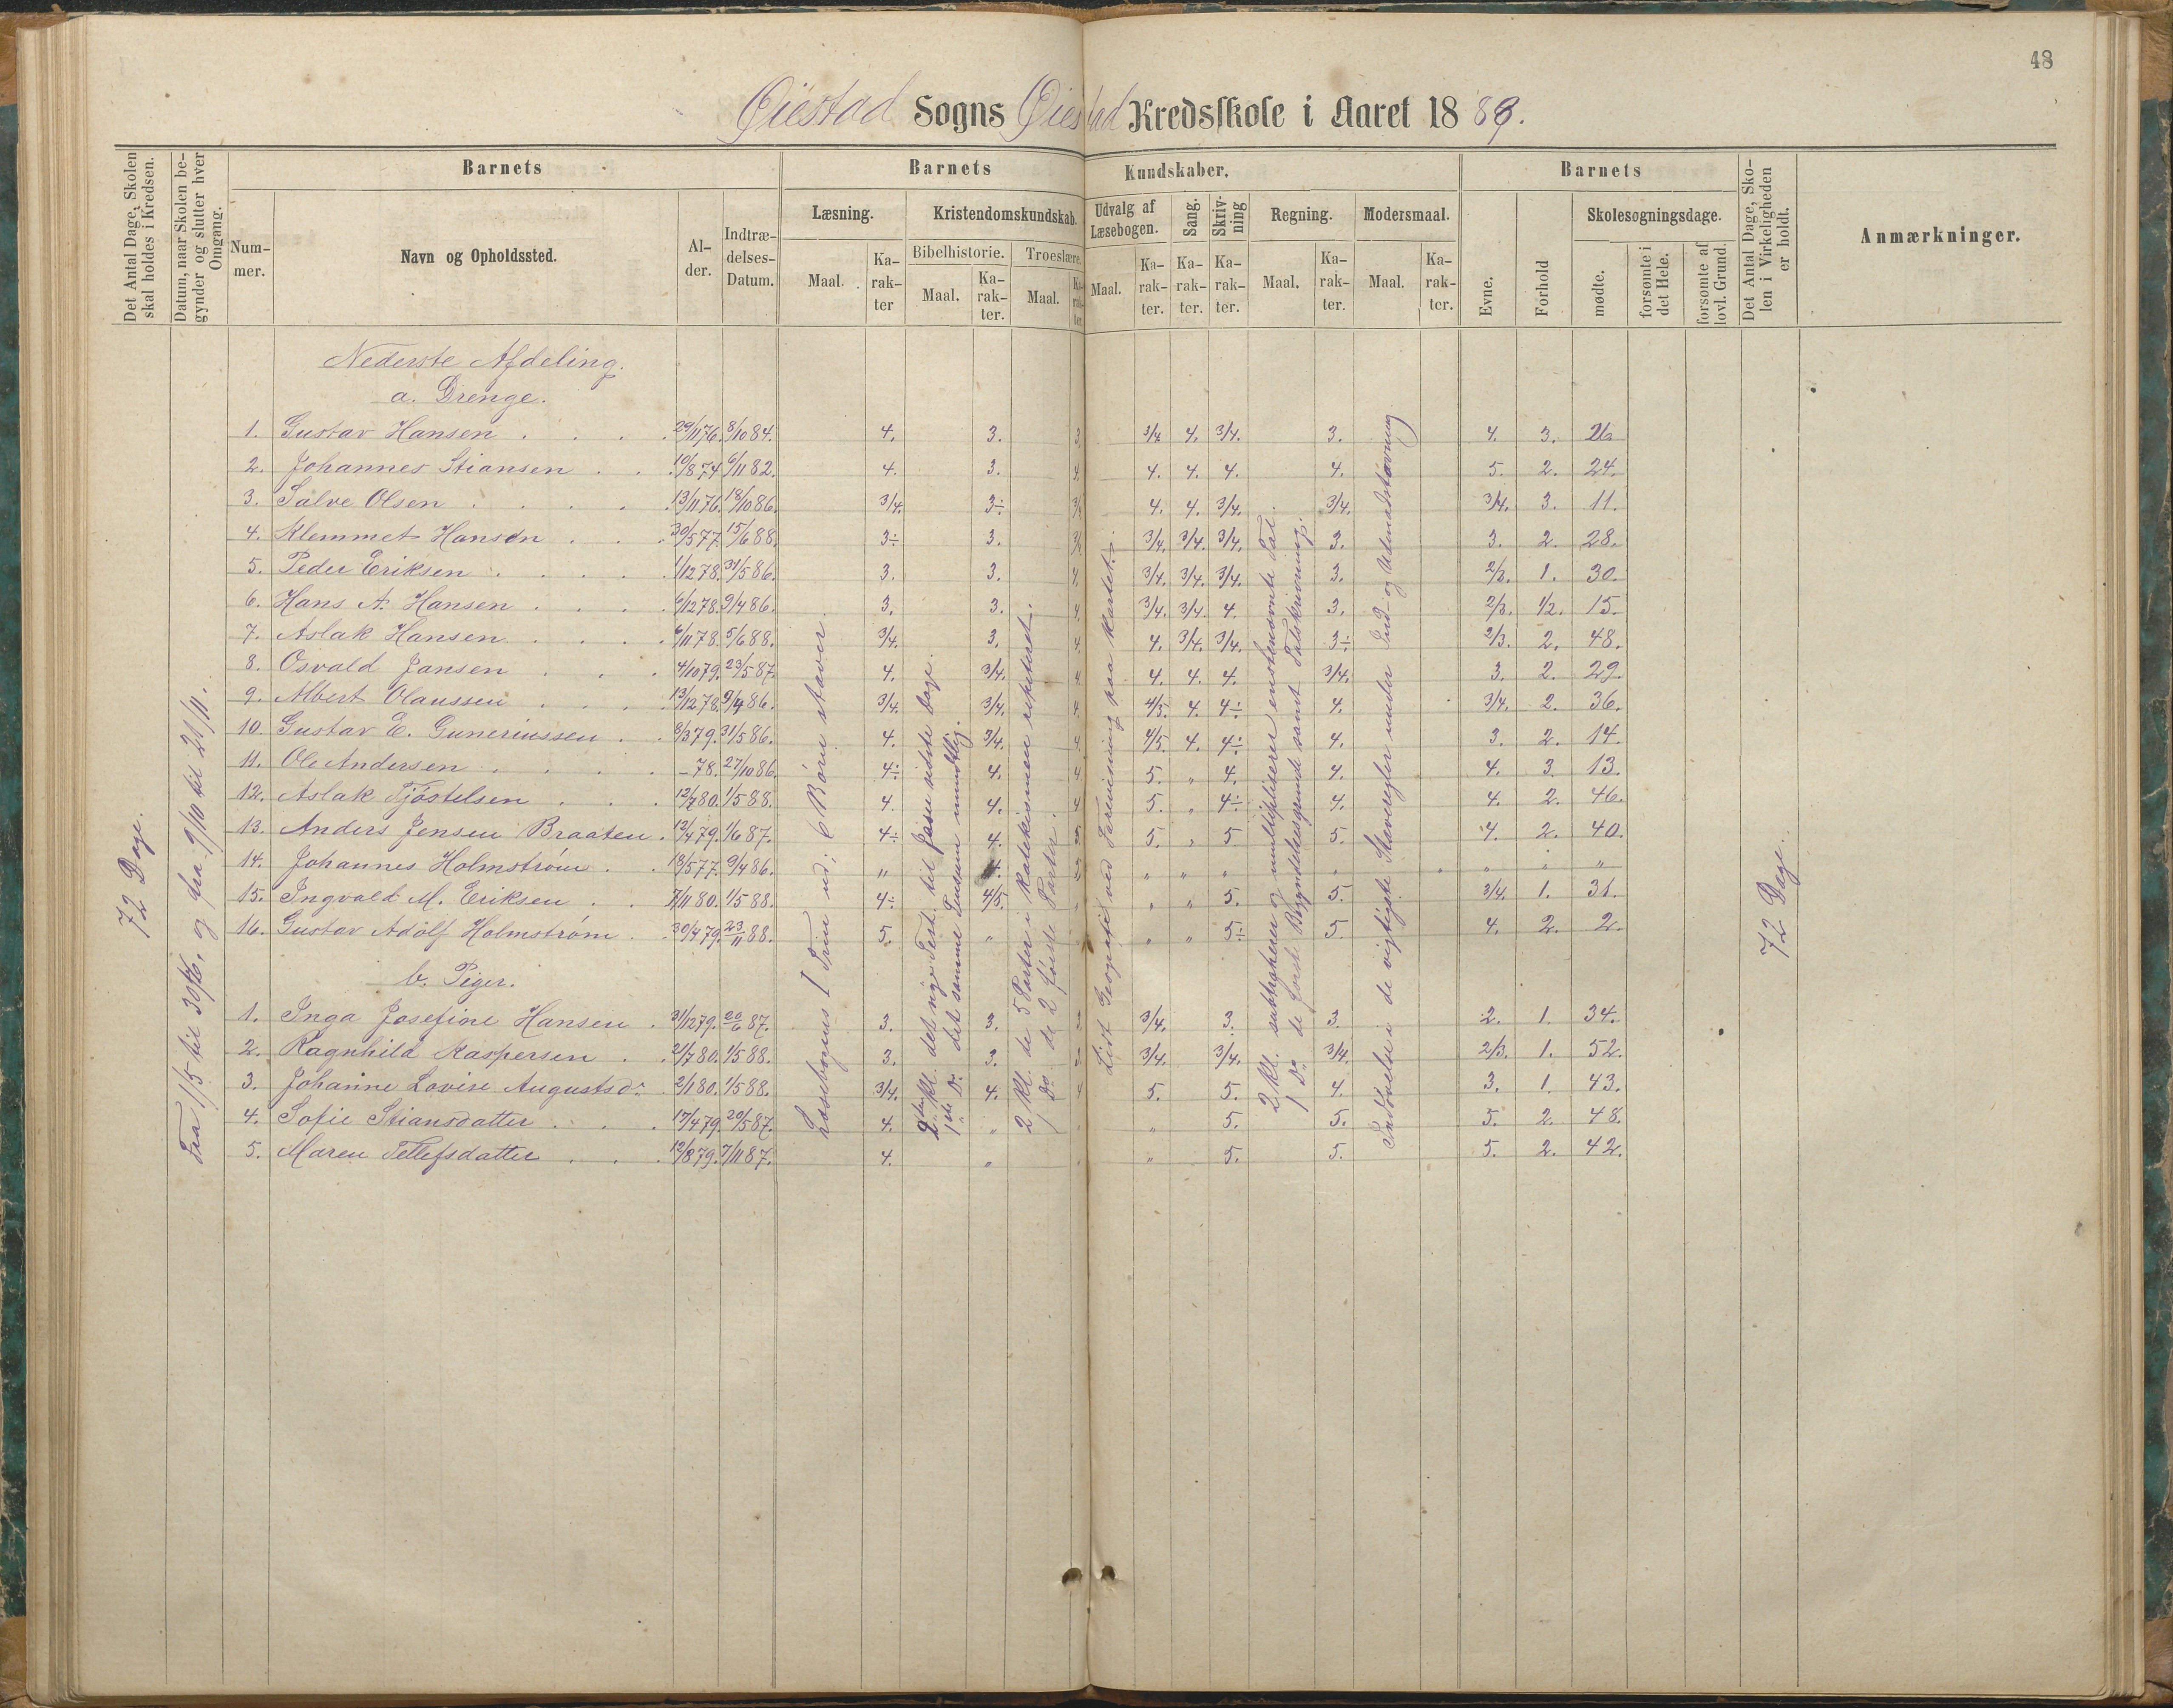 48
Øiestad Sogns Øiestad Kredsskole i Aaret 1888.
Det Antal Dage, Skolen skal holdes i Kredsen.
Datum, naar Skolen begynder og slutter hver Omgang.
Barnets
Barnets Kundskaber.
Barnets
Det Antal Dage, Skolen i Virkeligheden er holdt.
Anmærkninger.
Nummer.
Navn og Opholdssted.
Alder.
Indtrædelses-Datum.
Læsning.
Kristendomskundskab.
Udvalg af Læsebogen.
Sang.
Skrivning
Regning.
Modersmaal.
Evne.
Forhold
Skolesøgningsdage.
Bibelhistorie.
Troeslære.
Maal.
Karakter
Maal.
Karakter.
Maal.
Karakter
Maal.
Karakter.
Karakter.
Karakter.
Maal.
Karakter.
Maal.
Karakter.
mødte.
forsømte i det Hele.
forsømte af lovl. Grund.
72 Dage.
Fra 1/5 til 30/6, og fra 9/10 til 21/11.
Læsebogens I Trin ud; 6 Børn staver.
2den Kl. det nye Test. til Jesu sidste Dage.
1ste Do det samme Pensum mundtlig.
2 Kl. de 5 Parter i Katekismen repeteret.
1 Do de 2 første Parter.
Lidt Geografi ved Forevisning paa Kartet.
2 Kl. subtraherer og multipliserer ensbenævnte Tal.
1 Do de første Begyndelsesgrunde samt Talskrivning.
Indøvelse i de vigtigste Staveregler under Ind- og Udenadstavning
72 Dage.
Nederste Afdeling.
a. Drenge.
1. Gustav Hansen . . . . 29/11 76. 8/10 84. 4. 3. 3. 3/4 4. 3/4. 3. 4. 3. 26
2. Johannes Stiansen . . . 10/8 74 6/11 82. 4. 3. 4. 4. 4. 4. 4. 5. 2. 24.
3. Salve Olsen . . . . 13/11 76. 18/10 86. 3/4. 3÷ 3/4 4. 4. 3/4. 3/4. 3/4. 3. 11.
4. Klemmet Hansen . . . 30/5 77. 15/6 88. 3÷ 3. 3/4 3/4. 3/4. 3/4. 3. 3. 2. 28.
5. Peder Eriksen . . . . 1/12 78. 31/5 86. 3. 3. 4. 3/4. 3/4. 3/4. 3. 2/3. 1. 30.
6. Hans A. Hansen . . . . 6/12 78. 9/4 86. 3. 3. 4. 3/4. 3/4. 4. 3. 2/3. 1/2. 15.
7. Aslak Hansen . . . . 6/11 78. 5/6 88. 3/4. 3. 4. 4. 3/4. 3/4. 3÷ 2/3. 2. 48.
8. Osvald Jansen . . . 4/10 79. 23/5 87. 4. 3/4. 4. 4. 4. 4. 3/4. 3. 2. 29.
9. Albert Olaussen . . . . 13/12 78. 9/4 86. 3/4. 3/4. 4. 4/5. 4. 4÷ 4. 3/4. 2. 36.
10. Gustav E. Guneriussen . . 8/3 79. 31/5 86. 4. 3/4. 4. 4/5 4. 4÷ 4. 3. 2. 14.
11. Ole Andersen . . . . – 78. 27/10 86. 4÷ 4. 4 5. " 4. 4. 4. 3. 13.
12. Aslak Tjøstelsen . . . 12/7 80. 1/5 88. 4. 4. 4 5. " 4÷ 4. 4. 2. 46.
13. Anders Jensen Braaten . 12/4 79. 1/6 87. 4÷ 4. 5 5. " 5 5. 4. 2. 40.
14. Johannes Holmstrøm . . 18/5 77. 9/4 86. " 4. 5 " " " " " " " "
15. Ingvald M. Eriksen . . 7/11 80. 1/5 88. 4÷ 4/5. " " " 5. 5. 3/4. 1. 31.
16. Gustav Adolf Holmstrøm . 30/4 79. 23/11 88. 5. " " " " 5÷ 5. 4. 2. 2.
b. Piger.
1. Inga Josefine Hansen . 31/12 79. 20/6 87. 3. 3. 3/4. 3. 3. 2. 1. 34.
2. Ragnhild Kaspersen . . 2/7 80. 1/5 88. 3. 3. 3/4. 3/4. 3/4. 2/3. 1. 52.
3. Johanne Lovise Augustsdr. 2/1 80. 1/5 88. 3/4. 4. 4 5. 5. 4. 3. 1. 43.
4. Sofie Stiansdatter . . . 17/4 79. 20/5 87. 4. " " " 5. 5. 5. 2. 48.
5. Maren Tellefsdatter . . . 12/8 79. 7/11 87. 4. " " " 5. 5. 5. 2. 42.